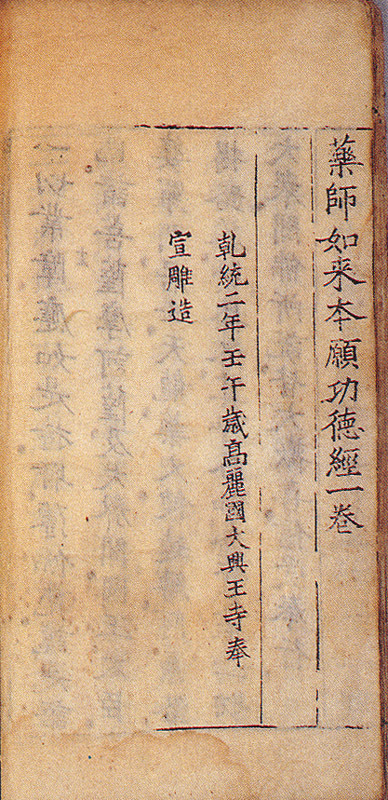 藥師如来本願功德經一卷
乹統二年壬午歲高麗國大興王寺奉
宣雕造